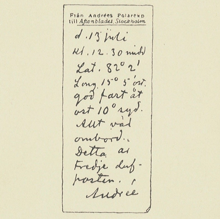 Från Andrées Polarexp.
till Aftonbladet, Stockholm.
d. 13 juli
kl. 12.30 midd.
Lat. 82° 2'
Long. 15° 5' ost.
god fart åt
ost 10° syd.
Allt väl
ombord.
Detta är
tredje duf-
posten.
Andrée